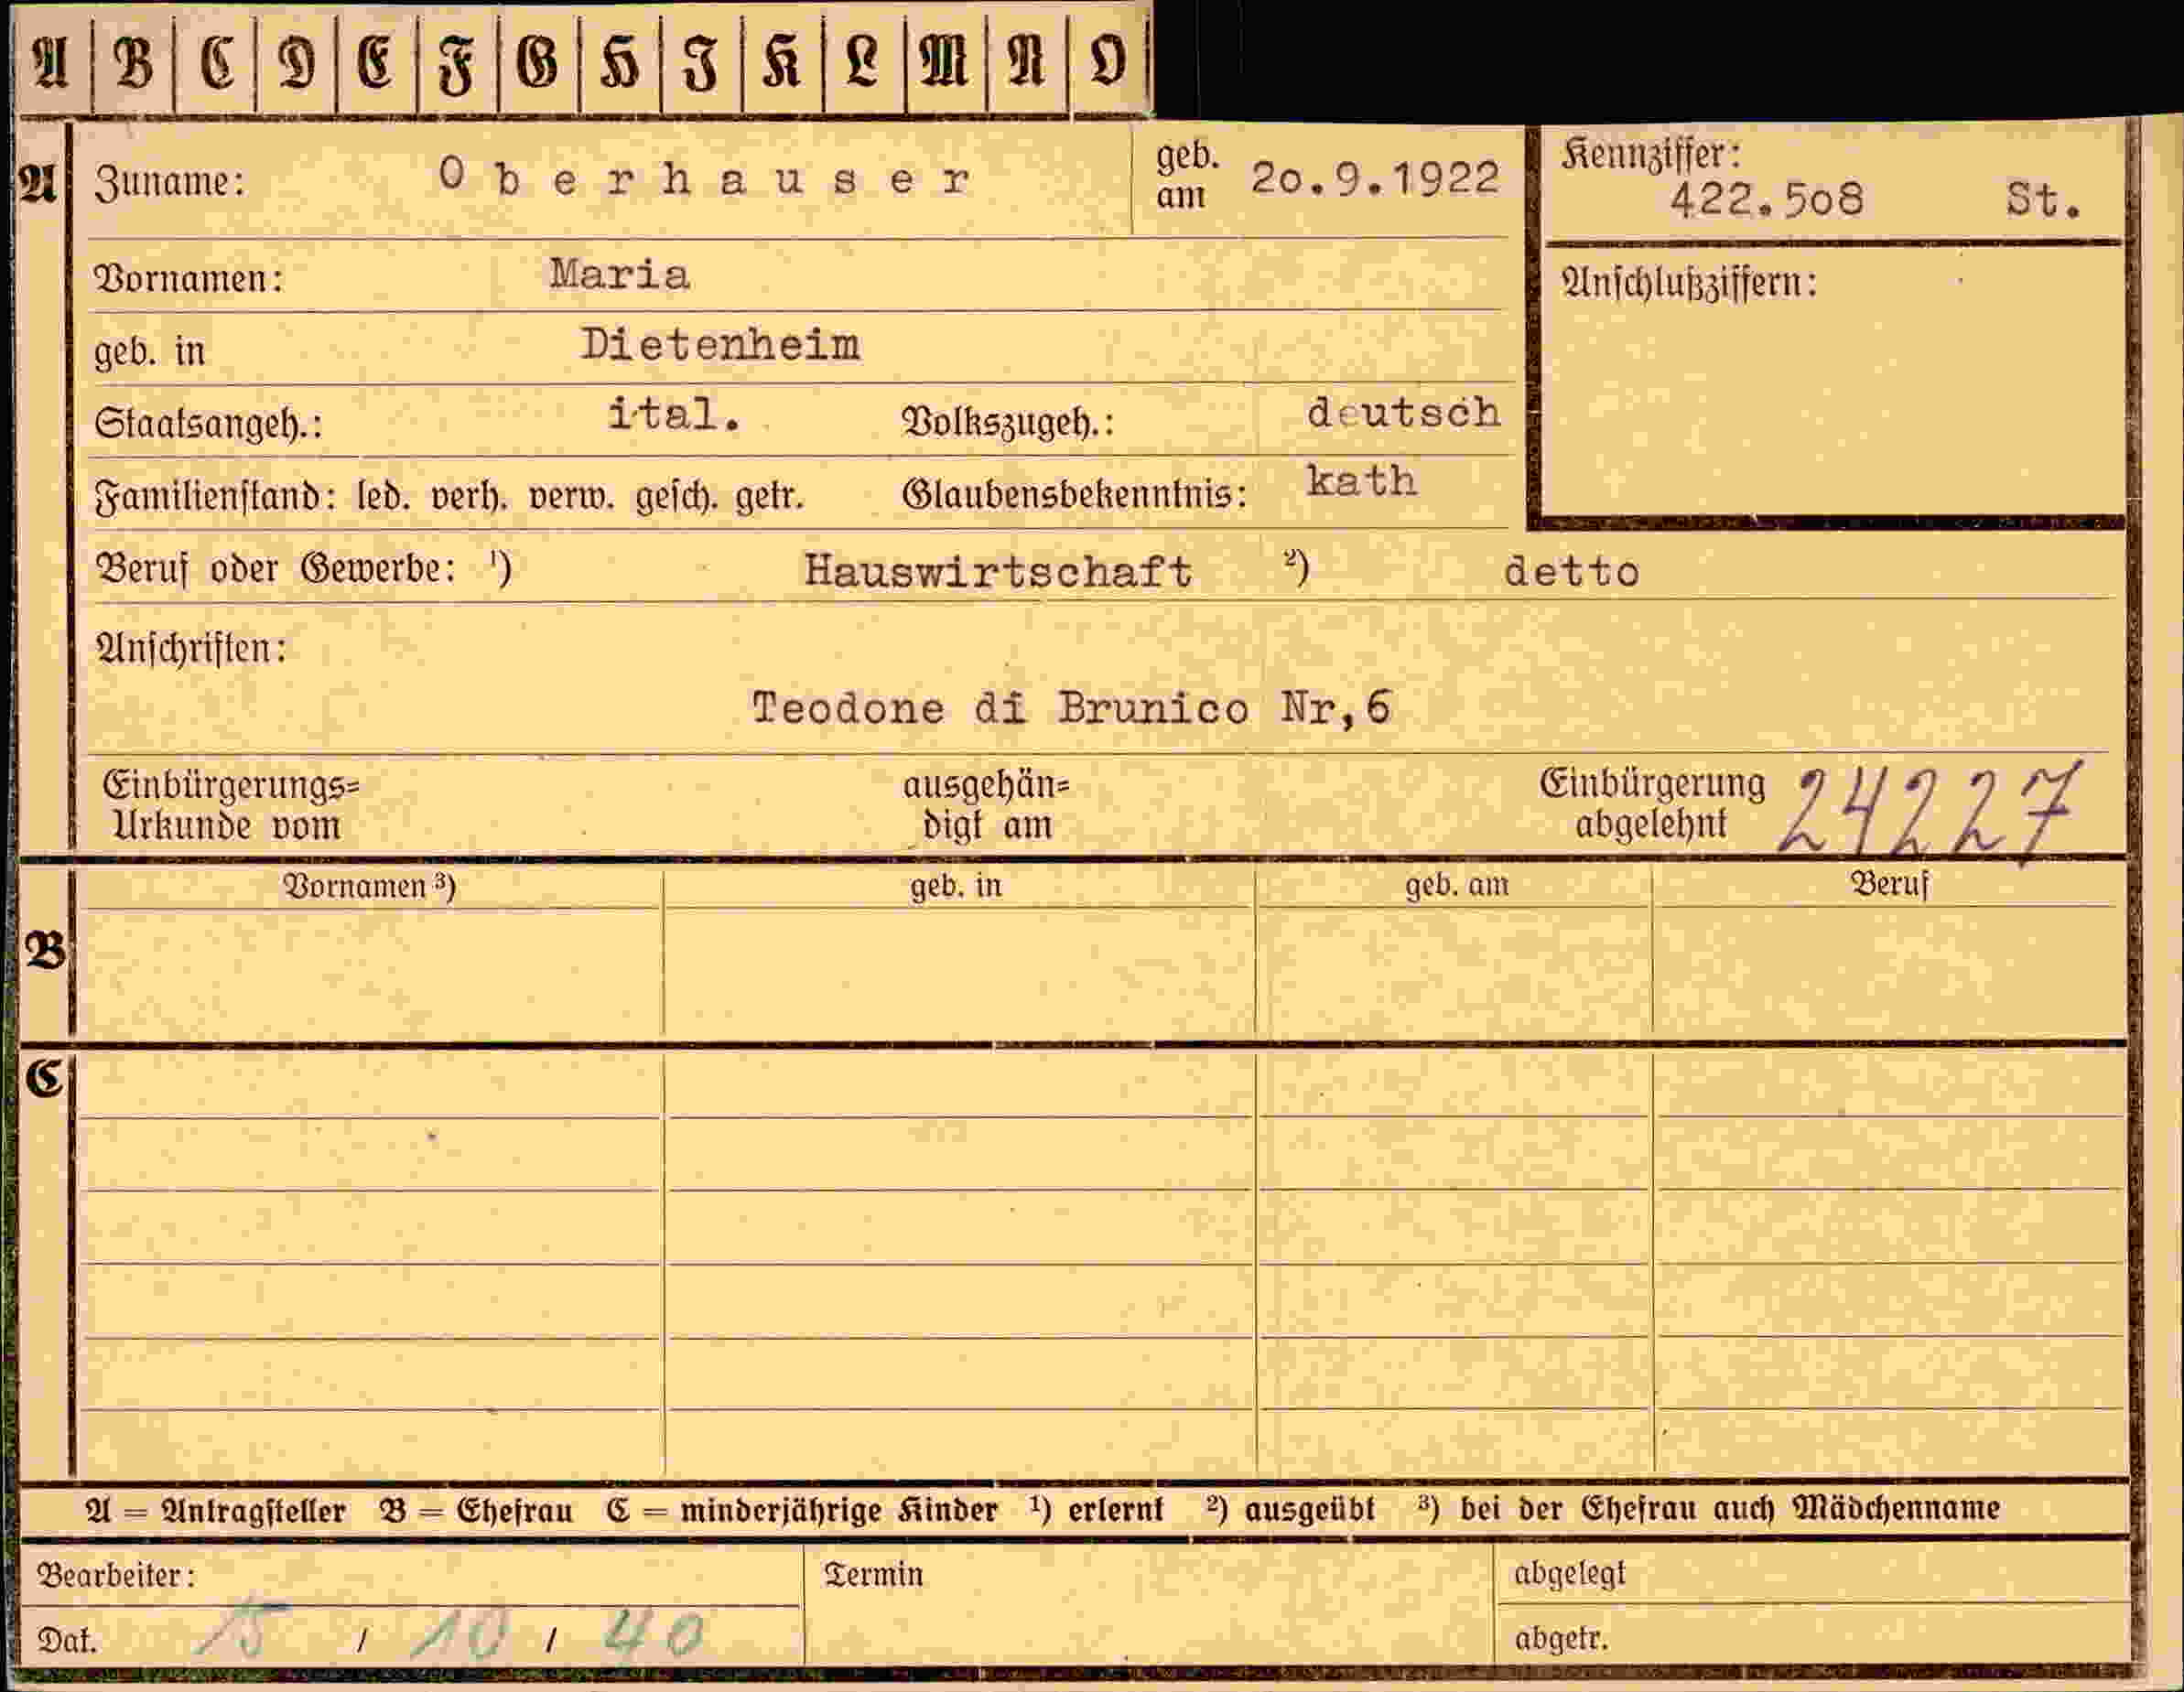 A B C D E F G H I K L M N O
A Zuname: Oberhauser geb. am 20.9.1922 Kennziffer: 422.508 St.
Vornamen: Maria Anschlußziffern:
geb. in Dietenheim
Staatsangeh.: ital. Volkszugeh.: deutsch
Familienstand: led. verh. verw. gesch. getr. Glaubensbekenntnis: kath
Beruf oder Gewerbe: ¹) Hauswirtschaft ²) detto
Anschriften:
Teodone di Brunico Nr,6
Einbürgerungs= ausgehän= Einbürgerung 24227
Urkunde vom digt am abgelehnt
Vornamen ³) geb. in geb. am Beruf
B
C
A = Antragsteller B = Ehefrau C = minderjährige Kinder ¹) erlernt ²) ausgeübt ³) bei der Ehefrau auch Mädchenname
Bearbeiter: Termin abgelegt
Dat. 15 / 10 / 40 abgetr.